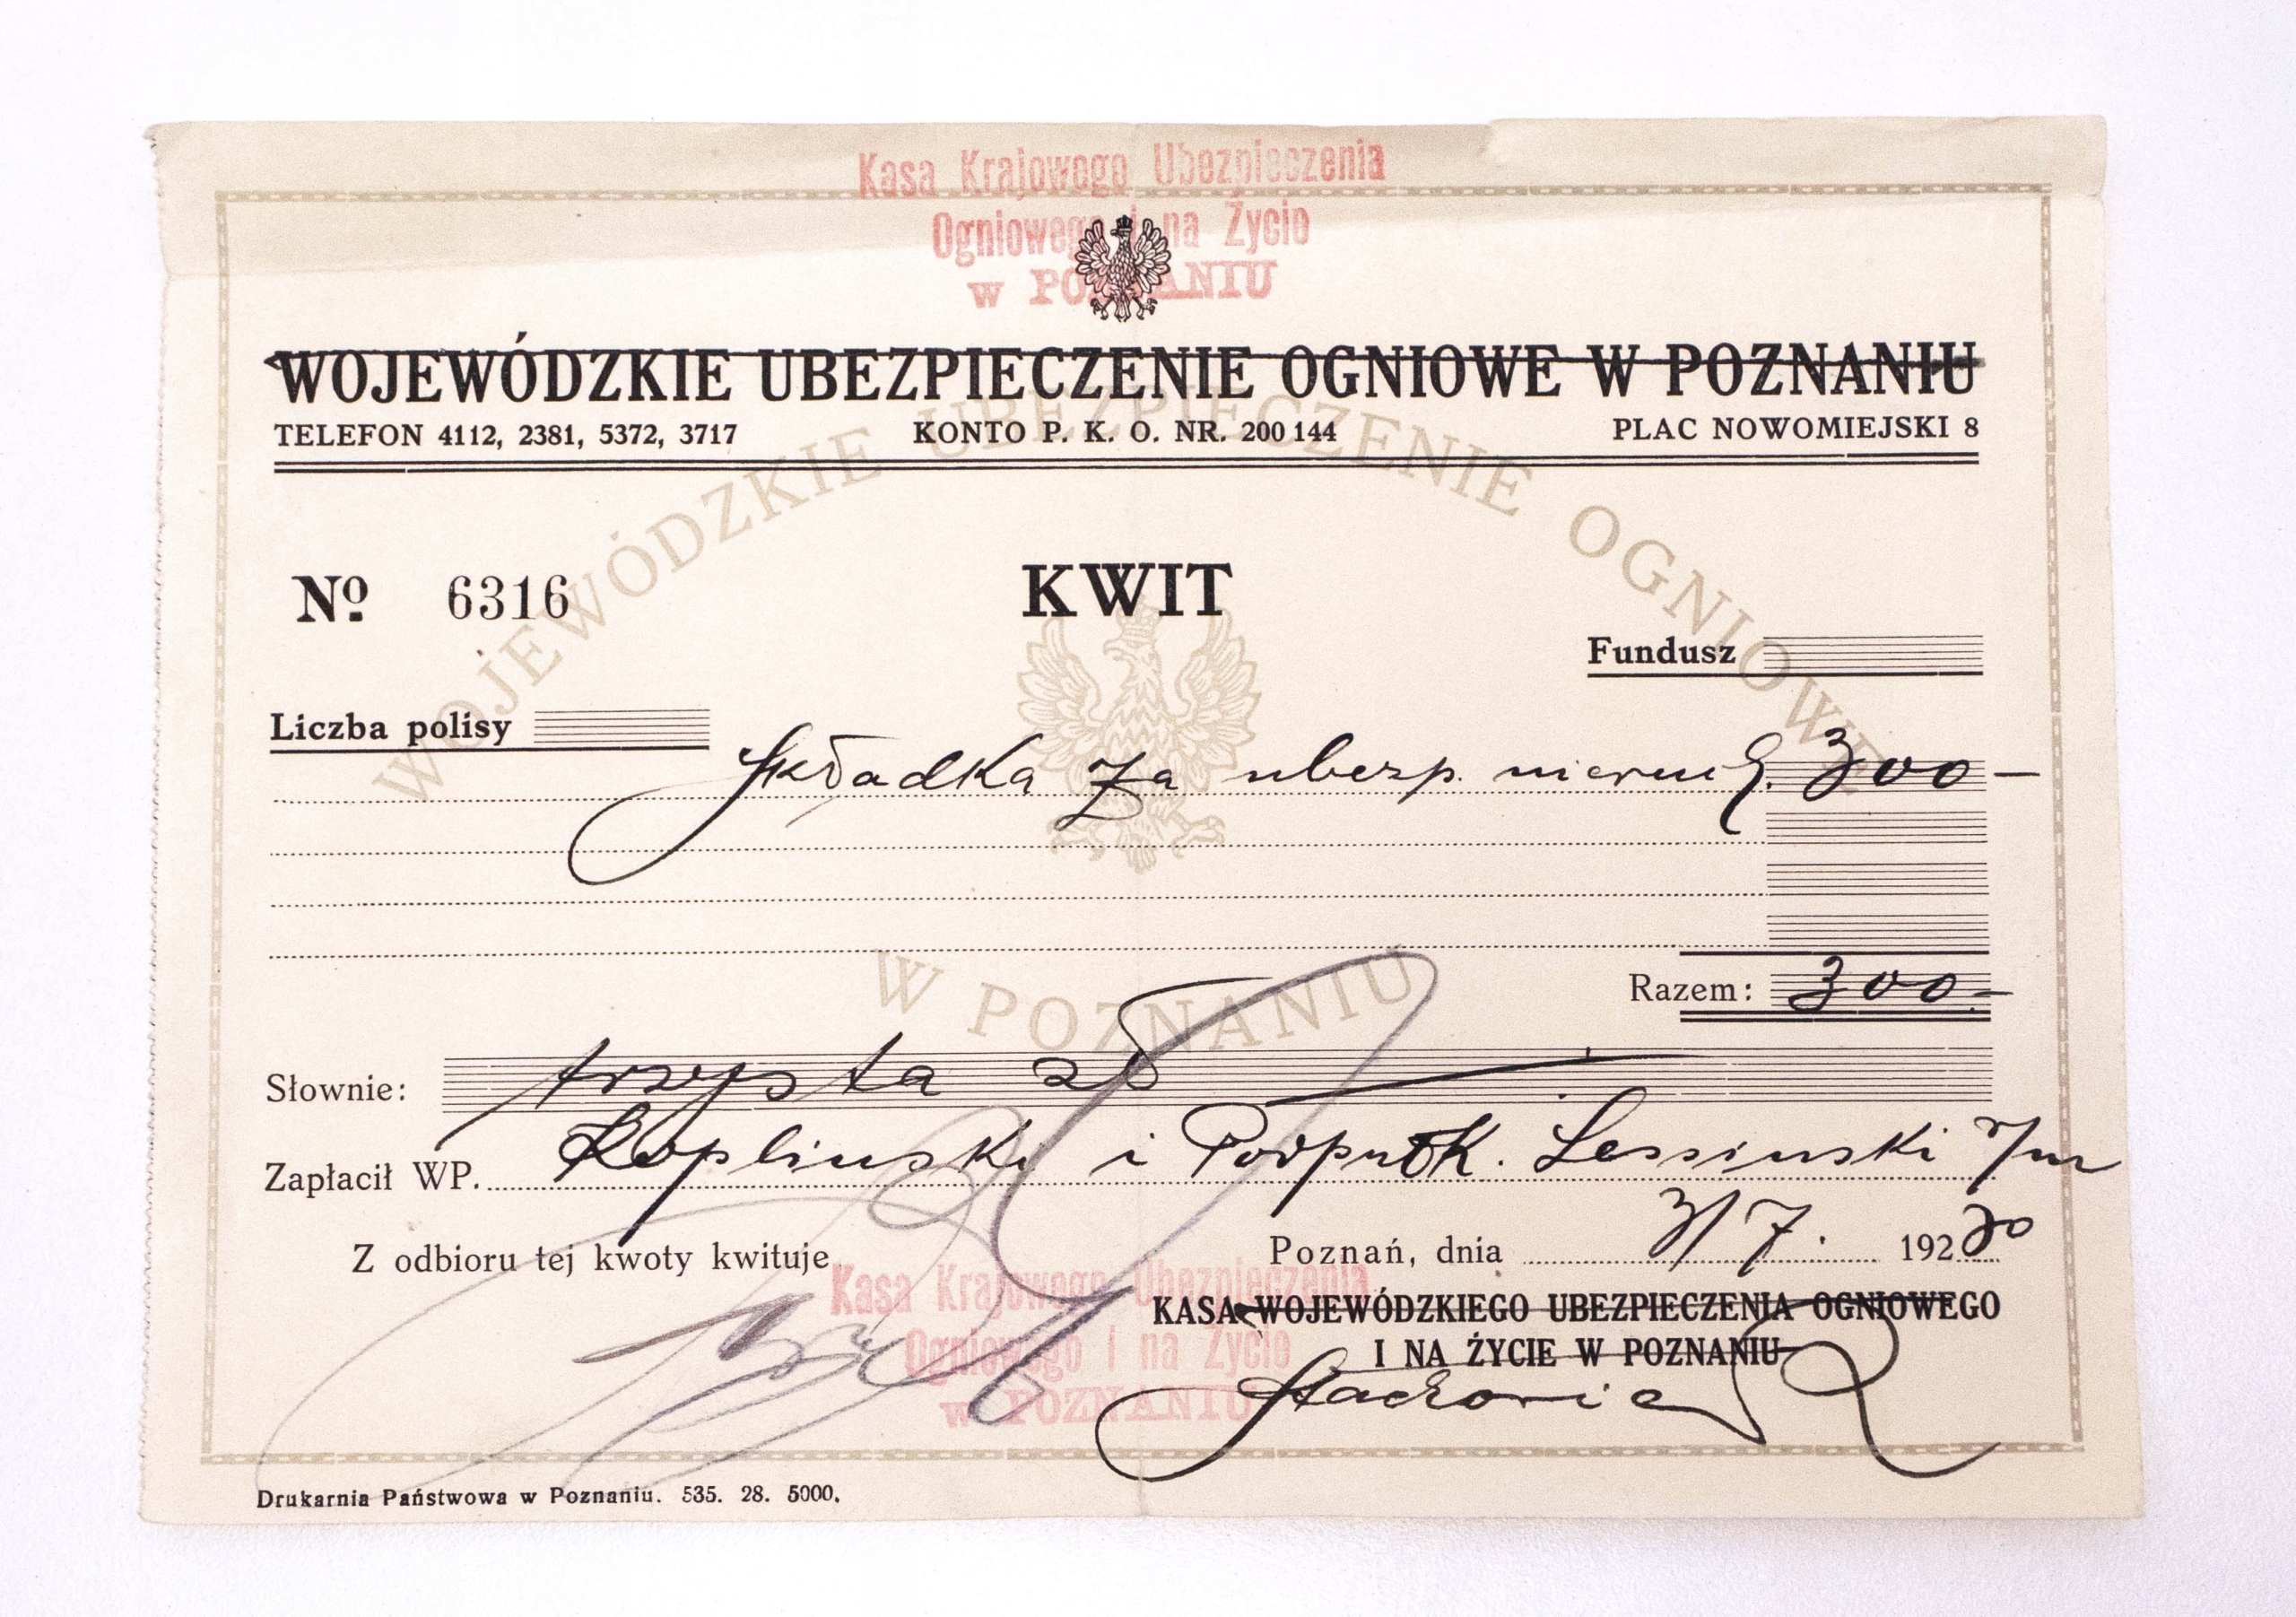 Kasa Krajowego Ubezpieczenia
Ogniowego i na Życie
w POZNANIU
WOJEWÓDZKIE UBEZPIECZENIE OGNIOWE W POZNANIU
TELEFON 4112, 2381, 5372, 3717 KONTO P. K. O. NR. 200 144 PLAC NOWOMIEJSKI 8
WOJEWÓDZKIE UBEZPIECZENIE OGNIOWE
No. 6316 KWIT
Fundusz
Liczba polisy
Składka za ubezp. 300 —
W POZNANIU
Razem: 300.—
Słownie: trzysta zł
Zapłacił WP. i Lessinski
Poznań, dnia 3/7. 192 30
Z odbioru tej kwoty kwituje
Kasa Krajowego Ubezpieczenia
Ogniowego i na Życie
w POZNANIU
KASA WOJEWÓDZKIEGO UBEZPIECZENIA OGNIOWEGO
I NA ŻYCIE W POZNANIU
Drukarnia Państwowa w Poznaniu. 535. 28. 5000.